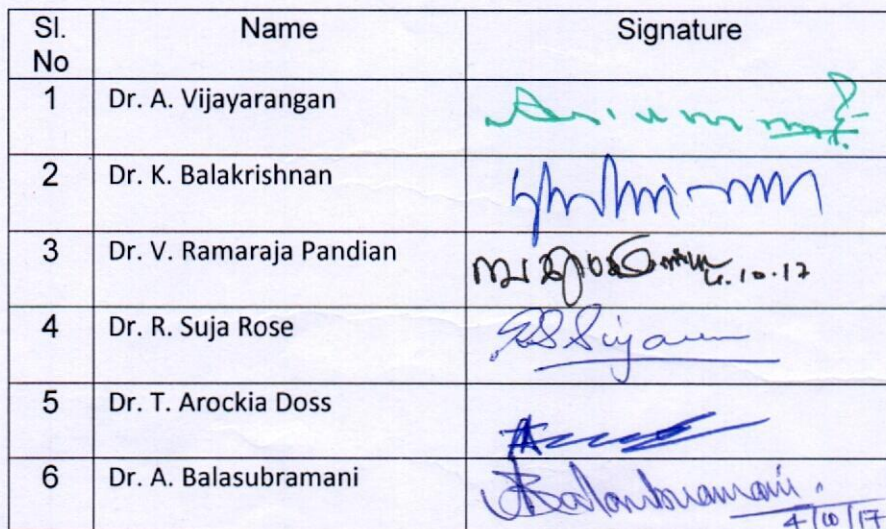 Sl. No Name Signature
1 Dr. A. Vijayarangan
2 Dr. K. Balakrishnan
3 Dr. V. Ramaraja Pandian 4.10.17
4 Dr. R. Suja Rose
5 Dr. T. Arockia Doss
6 Dr. A. Balasubramani
4/10/17